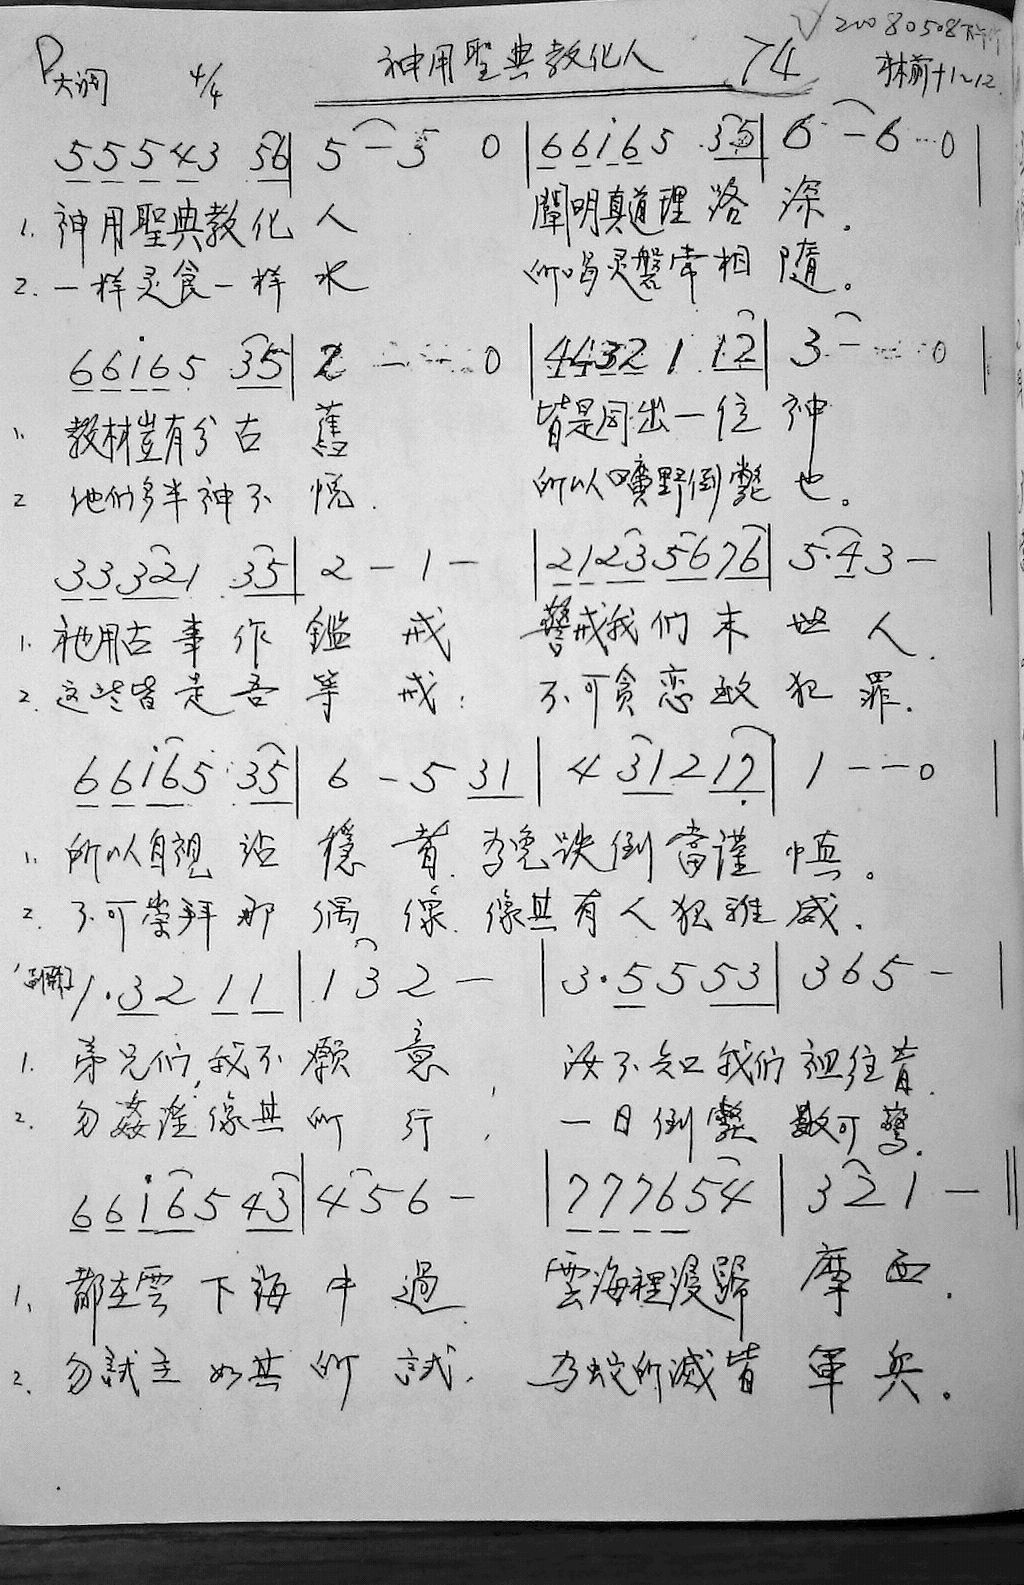 20080508
D大调 4/4 神用聖典教化人 74 林前十1~12
5 5 5 4 3 56 | 5 - 5 0 | 6 6 i 6 5 35 | 6 - 6 ··· 0 |
1. 神用聖典教化人 闡明真道理路深.
2. 一样灵食一样水 所喝灵磐常相隨。
6 6 i 6 5 35 | 2 - 0 | 4 4 3 2 1 12 | 3 - 0
1. 教材豈有分古舊 皆是同出一位神
2 他们多半神不悦. 所以曠野倒斃也。
3 3 3 2 1 35 | 2 - 1 - | 2 1 2 3 5 6 7 6 | 5·4 3 - |
1. 祂用古事作鑑戒 警戒我们末世人.
2. 这些皆是吾等戒; 不可貪恋致犯罪.
6 6 i 6 5 35 | 6 - 5 31 | 4 31 2 17 | 1 - - 0 |
1. 所以自視站穩者. 为免跌倒當謹慎。
2. 不可崇拜那偶像. 像其有人犯雅威.
副歌 1·3 2 1 1 | 1 3 2 - | 3·5 5 5 3 | 3 6 5 - |
1. 弟兄们,我不願意, 汝不知我们祖往昔
2. 勿姦淫像其所行, 一日倒斃數可驚.
6 6 i 6 5 43 | 4 5 6 - | 7 7 7 6 5 4 | 3 2 1 - ||
1. 都在雲下海中過 雲海裡浸歸摩西.
2. 勿試主如其所試. 为蛇所滅皆軍兵.